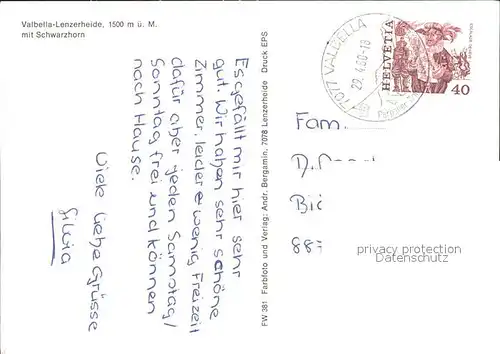 Valbella-Lenzerheide, 1500 m ü. M.
mit Schwarzhorn
Es gefällt mir hier sehr
gut. Wir haben sehr schöne
Zimmer, leider wenig Freizeit
dafür aber jeden Samstag/
Sonntag frei und können
nach Hause.
Viele liebe Grüsse
Silvia
FW 381 Farbfoto und Verlag: Andr. Bergamin, 7078 Lenzerheide Druck EPS
7077 VALBELLA
HELVETIA
40
Fam.
privacy protection
Datenschutz